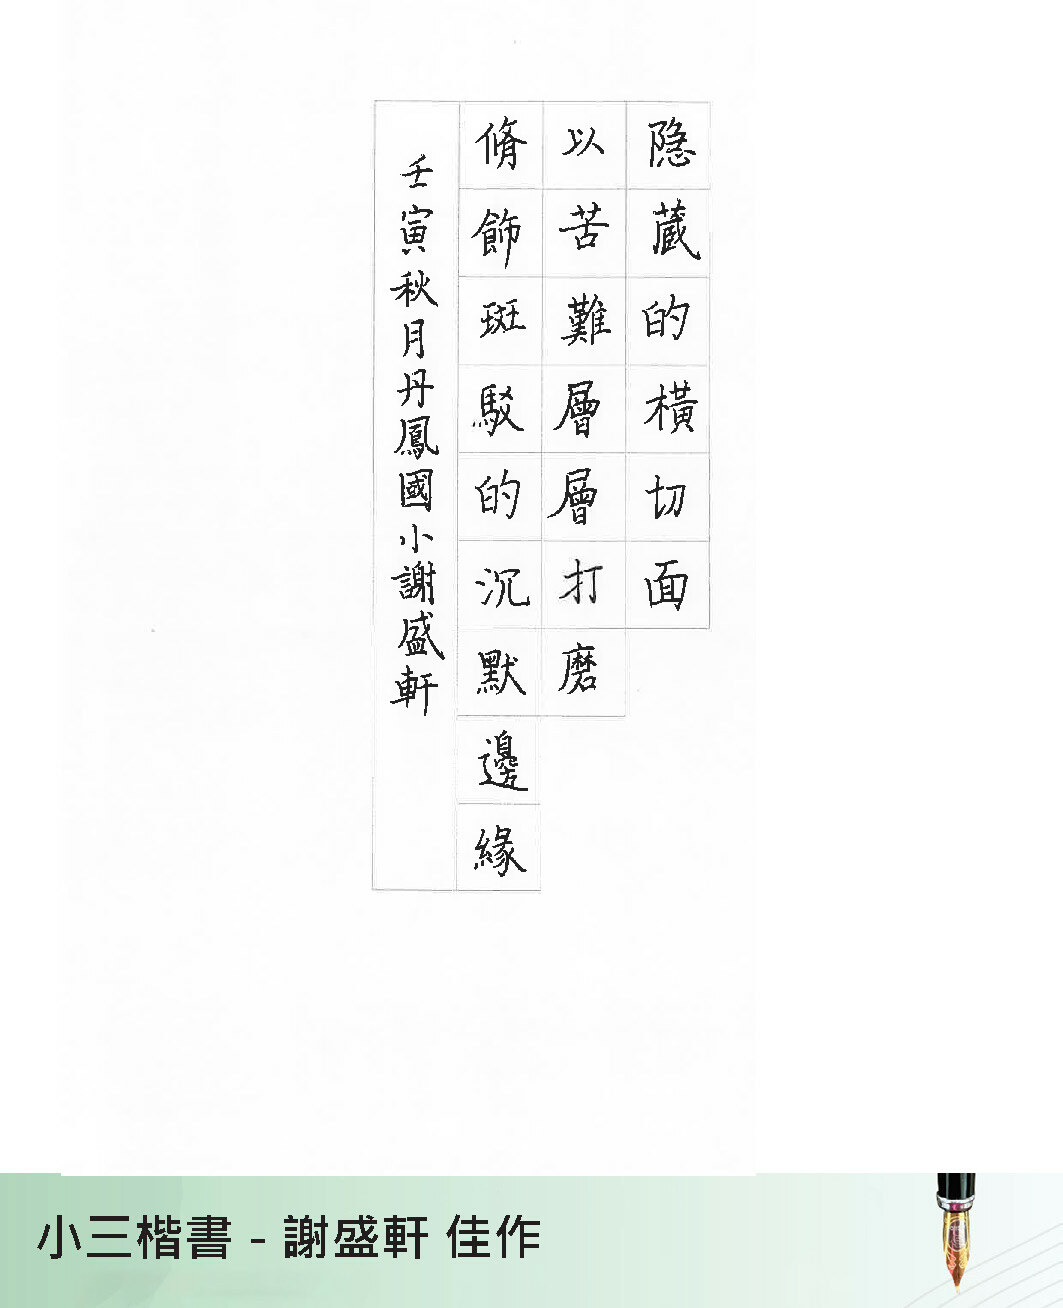 隐藏的橫切面
以苦難層層打磨
脩飾斑駁的沉默邊緣
壬寅秋月丹鳳國小謝盛軒
小三楷書 - 謝盛軒 佳作